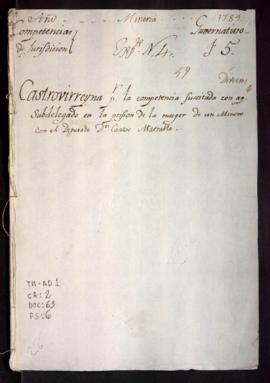 Año Mineria 1789
Competencias Gubernativo
de Jurisdicion Exp.te N. 4. f 5.
59
Castrovirreyna p.r la competencia suscitada con aq.l
Subdelegado en la prision de la muger de un Minero
con el Diputado D.n
TM-AD.1
CA: 2
DOC: 63
FS: 6